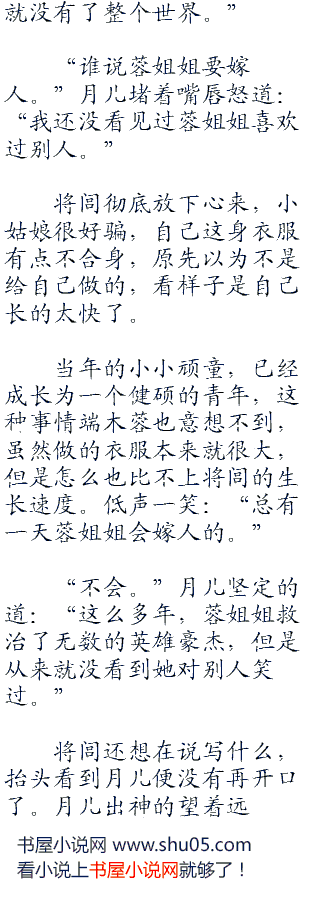 就没有了整个世界。”
“谁说蓉姐姐要嫁
人。”月儿堵着嘴唇怒道：
“我还没看见过蓉姐姐喜欢
过别人。”
将闾彻底放下心来，小
姑娘很好骗，自己这身衣服
有点不合身，原先以为不是
给自己做的，看样子是自己
长的太快了。
当年的小小顽童，已经
成长为一个健硕的青年，这
种事情端木蓉也意想不到，
虽然做的衣服本来就很大，
但是怎么也比不上将闾的生
长速度。低声一笑：“总有
一天蓉姐姐会嫁人的。”
“不会。”月儿坚定的
道：“这么多年，蓉姐姐救
治了无数的英雄豪杰，但是
从来就没看到她对别人笑
过。”
将闾还想在说写什么，
抬头看到月儿便没有再开口
了。月儿出神的望着远
书屋小说网 www.shu05.com
看小说上书屋小说网就够了！